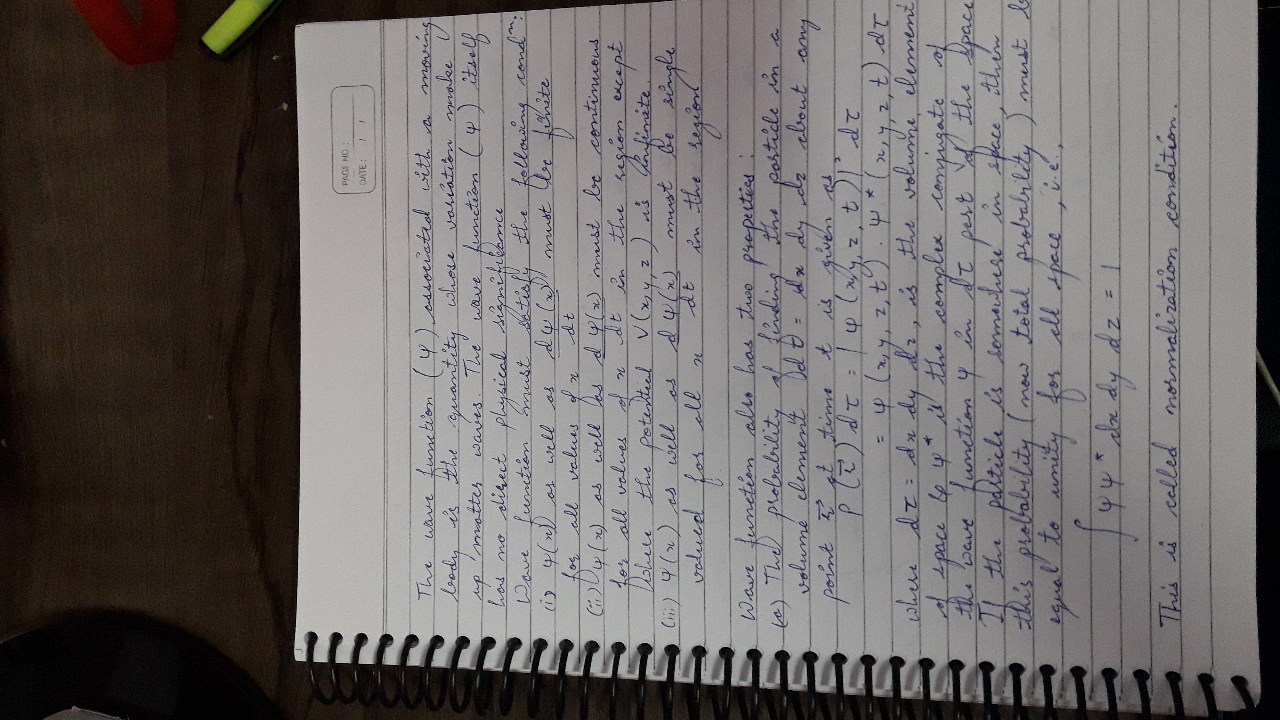 PAGE NO :
DATE : / /
The wave function (ψ) associated with a moving
body is the quantity whose variation make
up matter waves. The wave function (ψ) itself
has no direct physical significance
Wave function must satisfy the following condⁿ:
(i) ψ(x) as well as dψ(x) must be finite
for all values of x dt
(ii) ψ(x) as well as dψ(x) must be continuous
for all values of x dt in the region except
where the potential V(x,y,z) is infinite.
(iii) ψ(x) as well as dψ(x) must be single
valued for all x dt in the region
Wave function also has two properties:
(a) The probability of finding the particle in a
volume element dτ = dx dy dz about any
point r⃗ at time t is given as
P(r⃗) dτ = |ψ(x,y,z,t)|² dτ
= ψ(x,y,z,t) . ψ*(x,y,z,t) dτ
where dτ = dx dy dz, is the volume element
of space & ψ* is the complex conjugate of
the wave function ψ in dτ part of the space
If the particle is somewhere in space, then
this probability (now total probability) must b
equal to unity for all space, i.e.,
∫ψψ* dx dy dz = 1
This is called normalization condition.